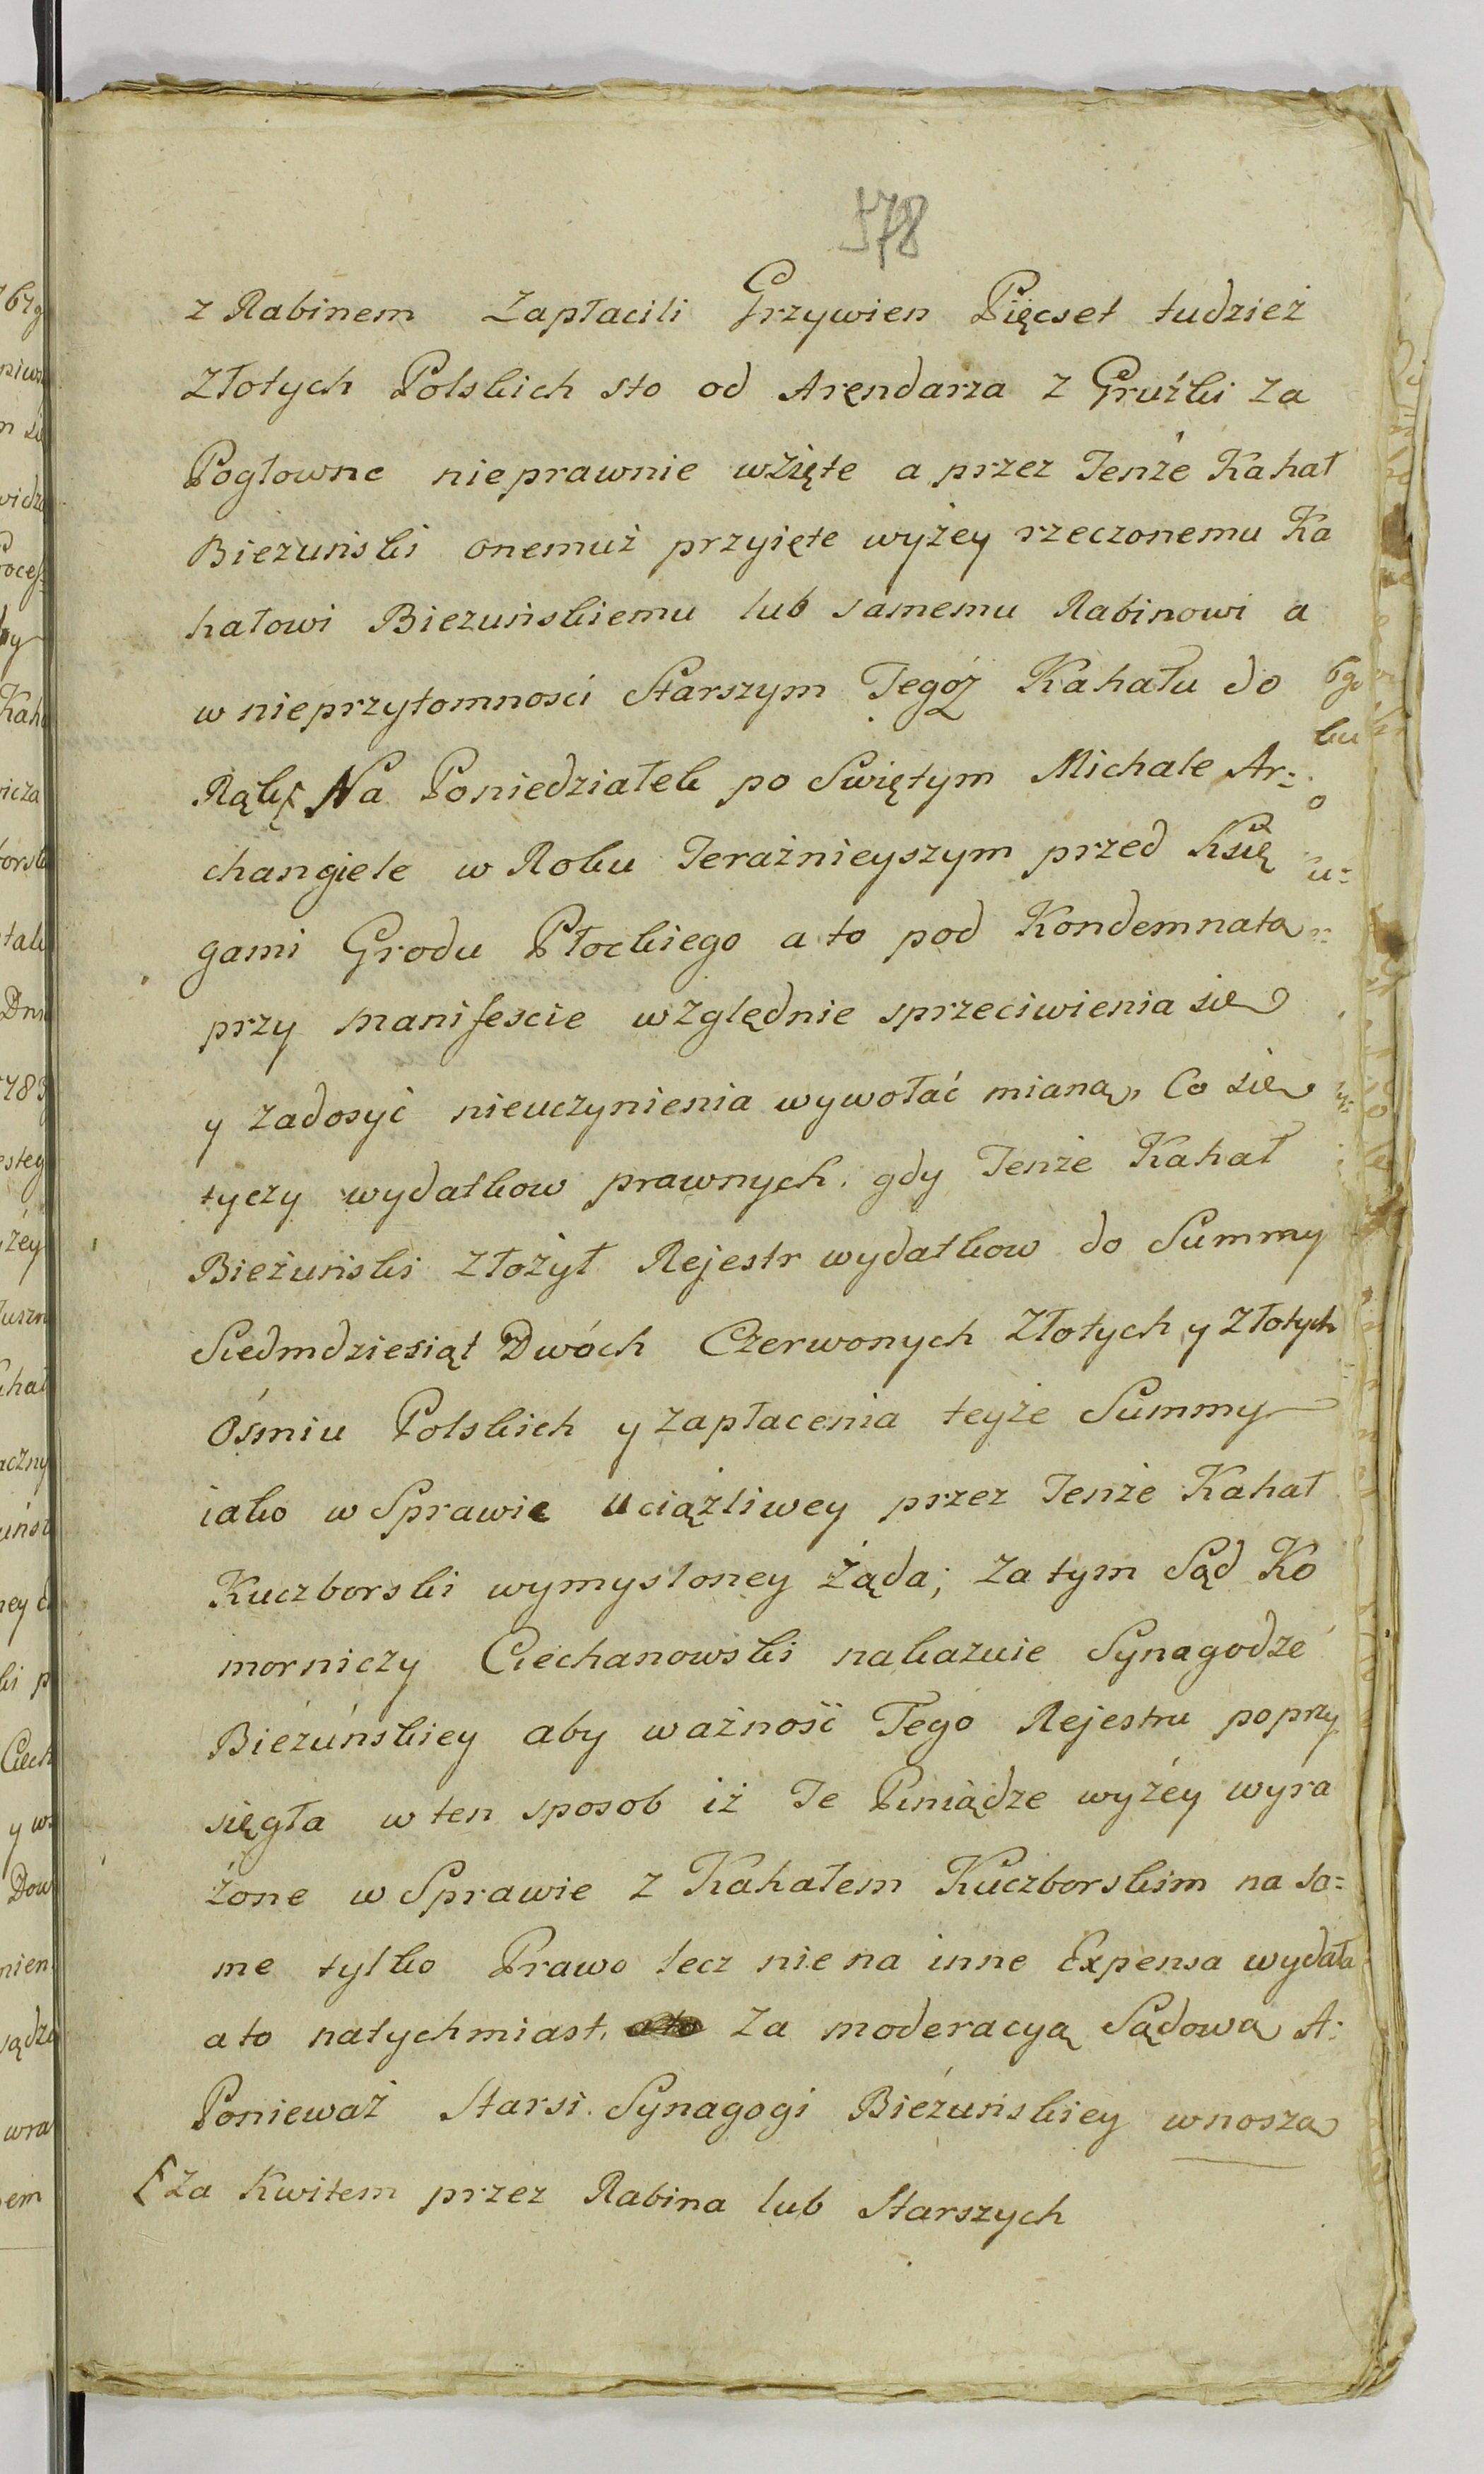 578
z Rabinem Zapłacili Grzywien Pięcset tudzież
Złotych Polskich sto od Arędarza z Gruźki za
Pogłowne nieprawnie wzięte a przez Tenże Kahał
Bieżuński onemuż przyięte wyżey rzeczonemu Ka
hałowi Bieżuńskiemu lub samemu Rabinowi a
w nieprzytomnosci Starszym Tegoż Kahału do
Rąk Na Poniedziałek po Swiętym Michale Ar=
changiele w Roku Teraźnieyszym przed Księ
gami Grodu Płockiego a to pod Kondemnatą
przy manifescie względnie sprzeciwienia się
y zadosyć nieuczynienia wywołać mianą, Co się
tyczy wydatkow prawnych. gdy Tenże Kahał
Bieżuński Złożył Rejestr wydatkow do Summy
Siedmdziesiąt Dwóch Czerwonych Złotych y Złotych
Ośmiu Polskich y zapłacenia teyże Summy
iako w Sprawie uciążliwey przez Tenże Kahał
Kuczborski wymysloney Żąda; za tym Sąd Ko
morniczy Ciechanowski nakazuie Synagodze
Bieżuńskiey aby ważność Tego Rejestru poprzy
sięgła w ten sposob iż Te Piniądze wyżey wyra
żone w Sprawie z Kahałem Kuczborskim na sa=
me tylko Prawo lecz nie na inne Expensa wydała
a to natychmiast. za moderacyą Sądową A:
Ponieważ Starsi Synagogi Bieżuńskiey wnoszą
[za Kwitem przez Rabina lub Starszych